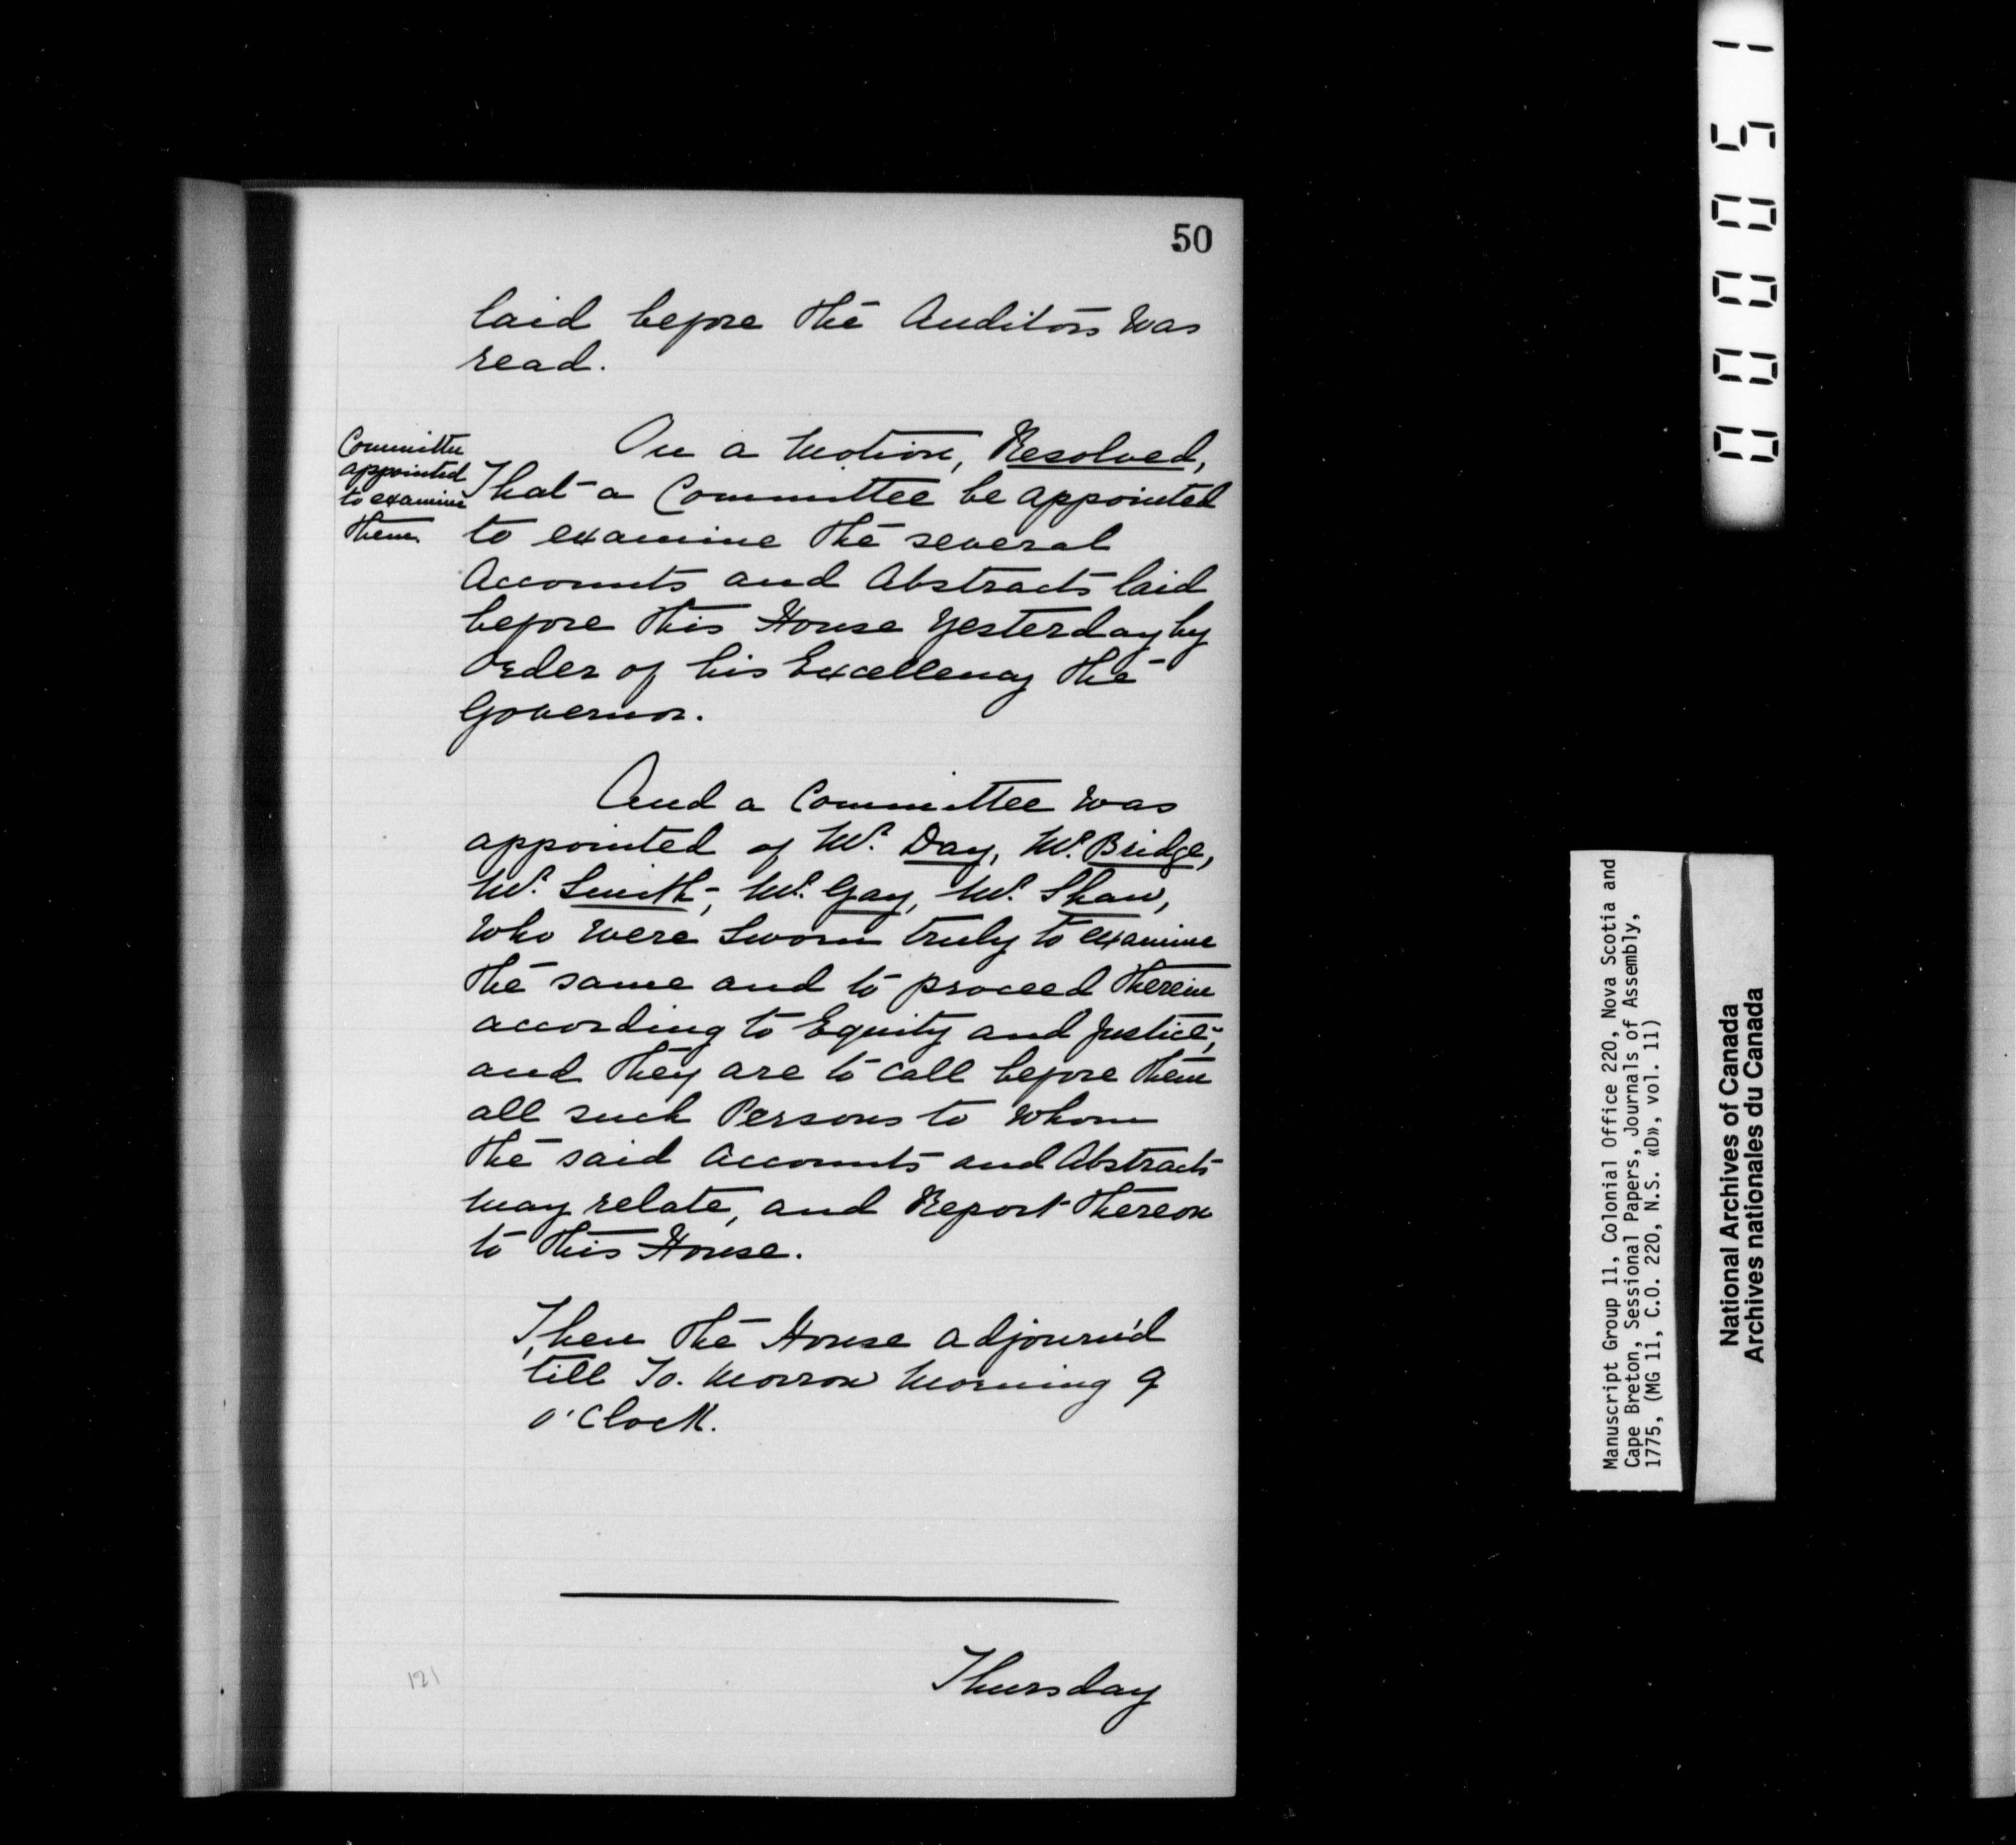 50
laid before the Auditors was
read.
Committee
appointed
to examine
them.
On a Motion, Resolved,
That a Committee be appointed
to examine the several
Accounts and Abstracts laid
before this House Yesterday by
Order of his Excellency the
Governor.
And a Committee was
appointed of Mr. Day, Mr. Bridge,
Mr. Smith, Mr. Gay, Mr. Shaw,
who were Sworn truly to examine
the same and to proceed therein
according to Equity and Justice;
and they are to call before them
all such Persons to whom
the said Accounts and Abstracts
may relate, and Report thereon
to this House.
Then the House adjourn'd
till To. Morrow Morning 9
O'Clock.
Thursday
121
000051
Manuscript Group 11, Colonial Office 220, Nova Scotia and
Cape Breton, Sessional Papers, Journals of Assembly,
1775, (MG 11, C.O. 220, N.S. «D», vol. 11)
National Archives of Canada
Archives nationales du Canada